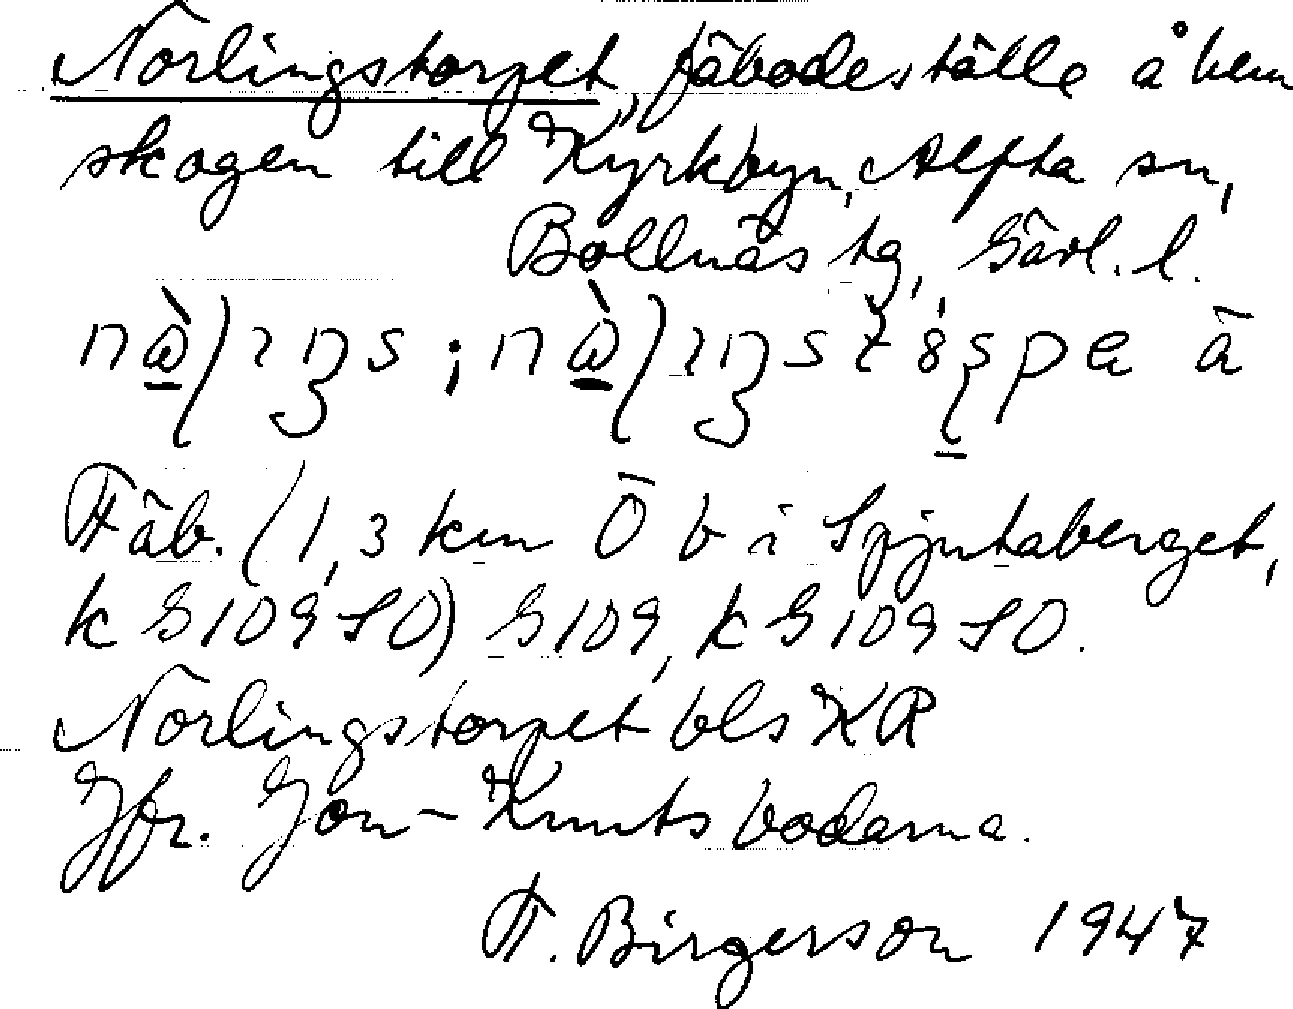 Norlingstorpet, fäbodeställe å hem
skogen till Kyrkbyn, Alfta sn,
Bollnäs tg, Gävl. l.
Fäb. (1,3 km Ö b i Spjutaberget,
k G109 SO) G109, k G109 SO.
Norlingstorpet bls KR
Jfr. Jon-Knutsbodarna.
F. Birgerson 1947